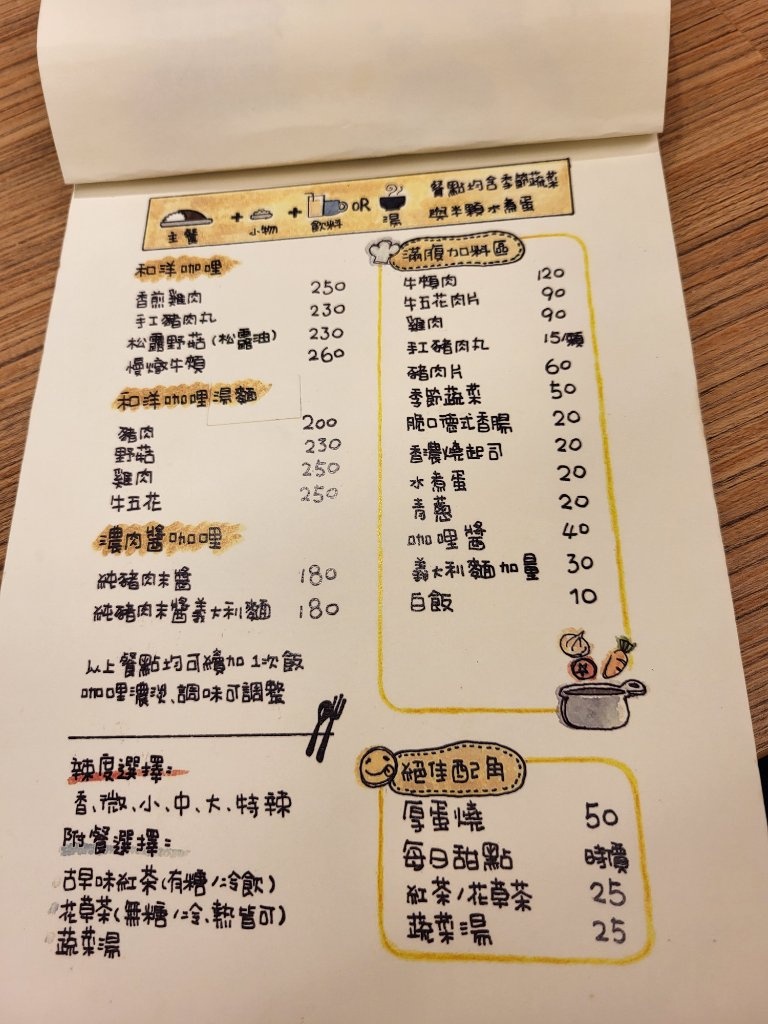 主餐 + 小物 + 飲料 OR 湯
餐點均含季節蔬菜
與半顆水煮蛋
和洋咖哩
香煎雞肉 250
手工豬肉丸 230
松露野菇(松露油) 230
慢燉牛頰 260
和洋咖哩湯麵
豬肉 200
野菇 230
雞肉 250
牛五花 250
濃肉醬咖哩
純豬肉末醬 180
純豬肉末醬義大利麵 180
以上餐點均可續加1次飯
咖哩濃淡、調味可調整
辣度選擇:
香、微、小、中、大、特辣
附餐選擇:
古早味紅茶(有糖/冷飲)
花草茶(無糖/冷、熱皆可)
蔬菜湯
滿腹加料區
牛頰肉 120
牛五花肉片 90
雞肉 90
手工豬肉丸 15/顆
豬肉片 60
季節蔬菜 50
脆口德式香腸 20
香濃燒起司 20
水煮蛋 20
青蔥 20
咖哩醬 40
義大利麵加量 30
白飯 10
絕佳配角
厚蛋燒 50
每日甜點 時價
紅茶/花草茶 25
蔬菜湯 25